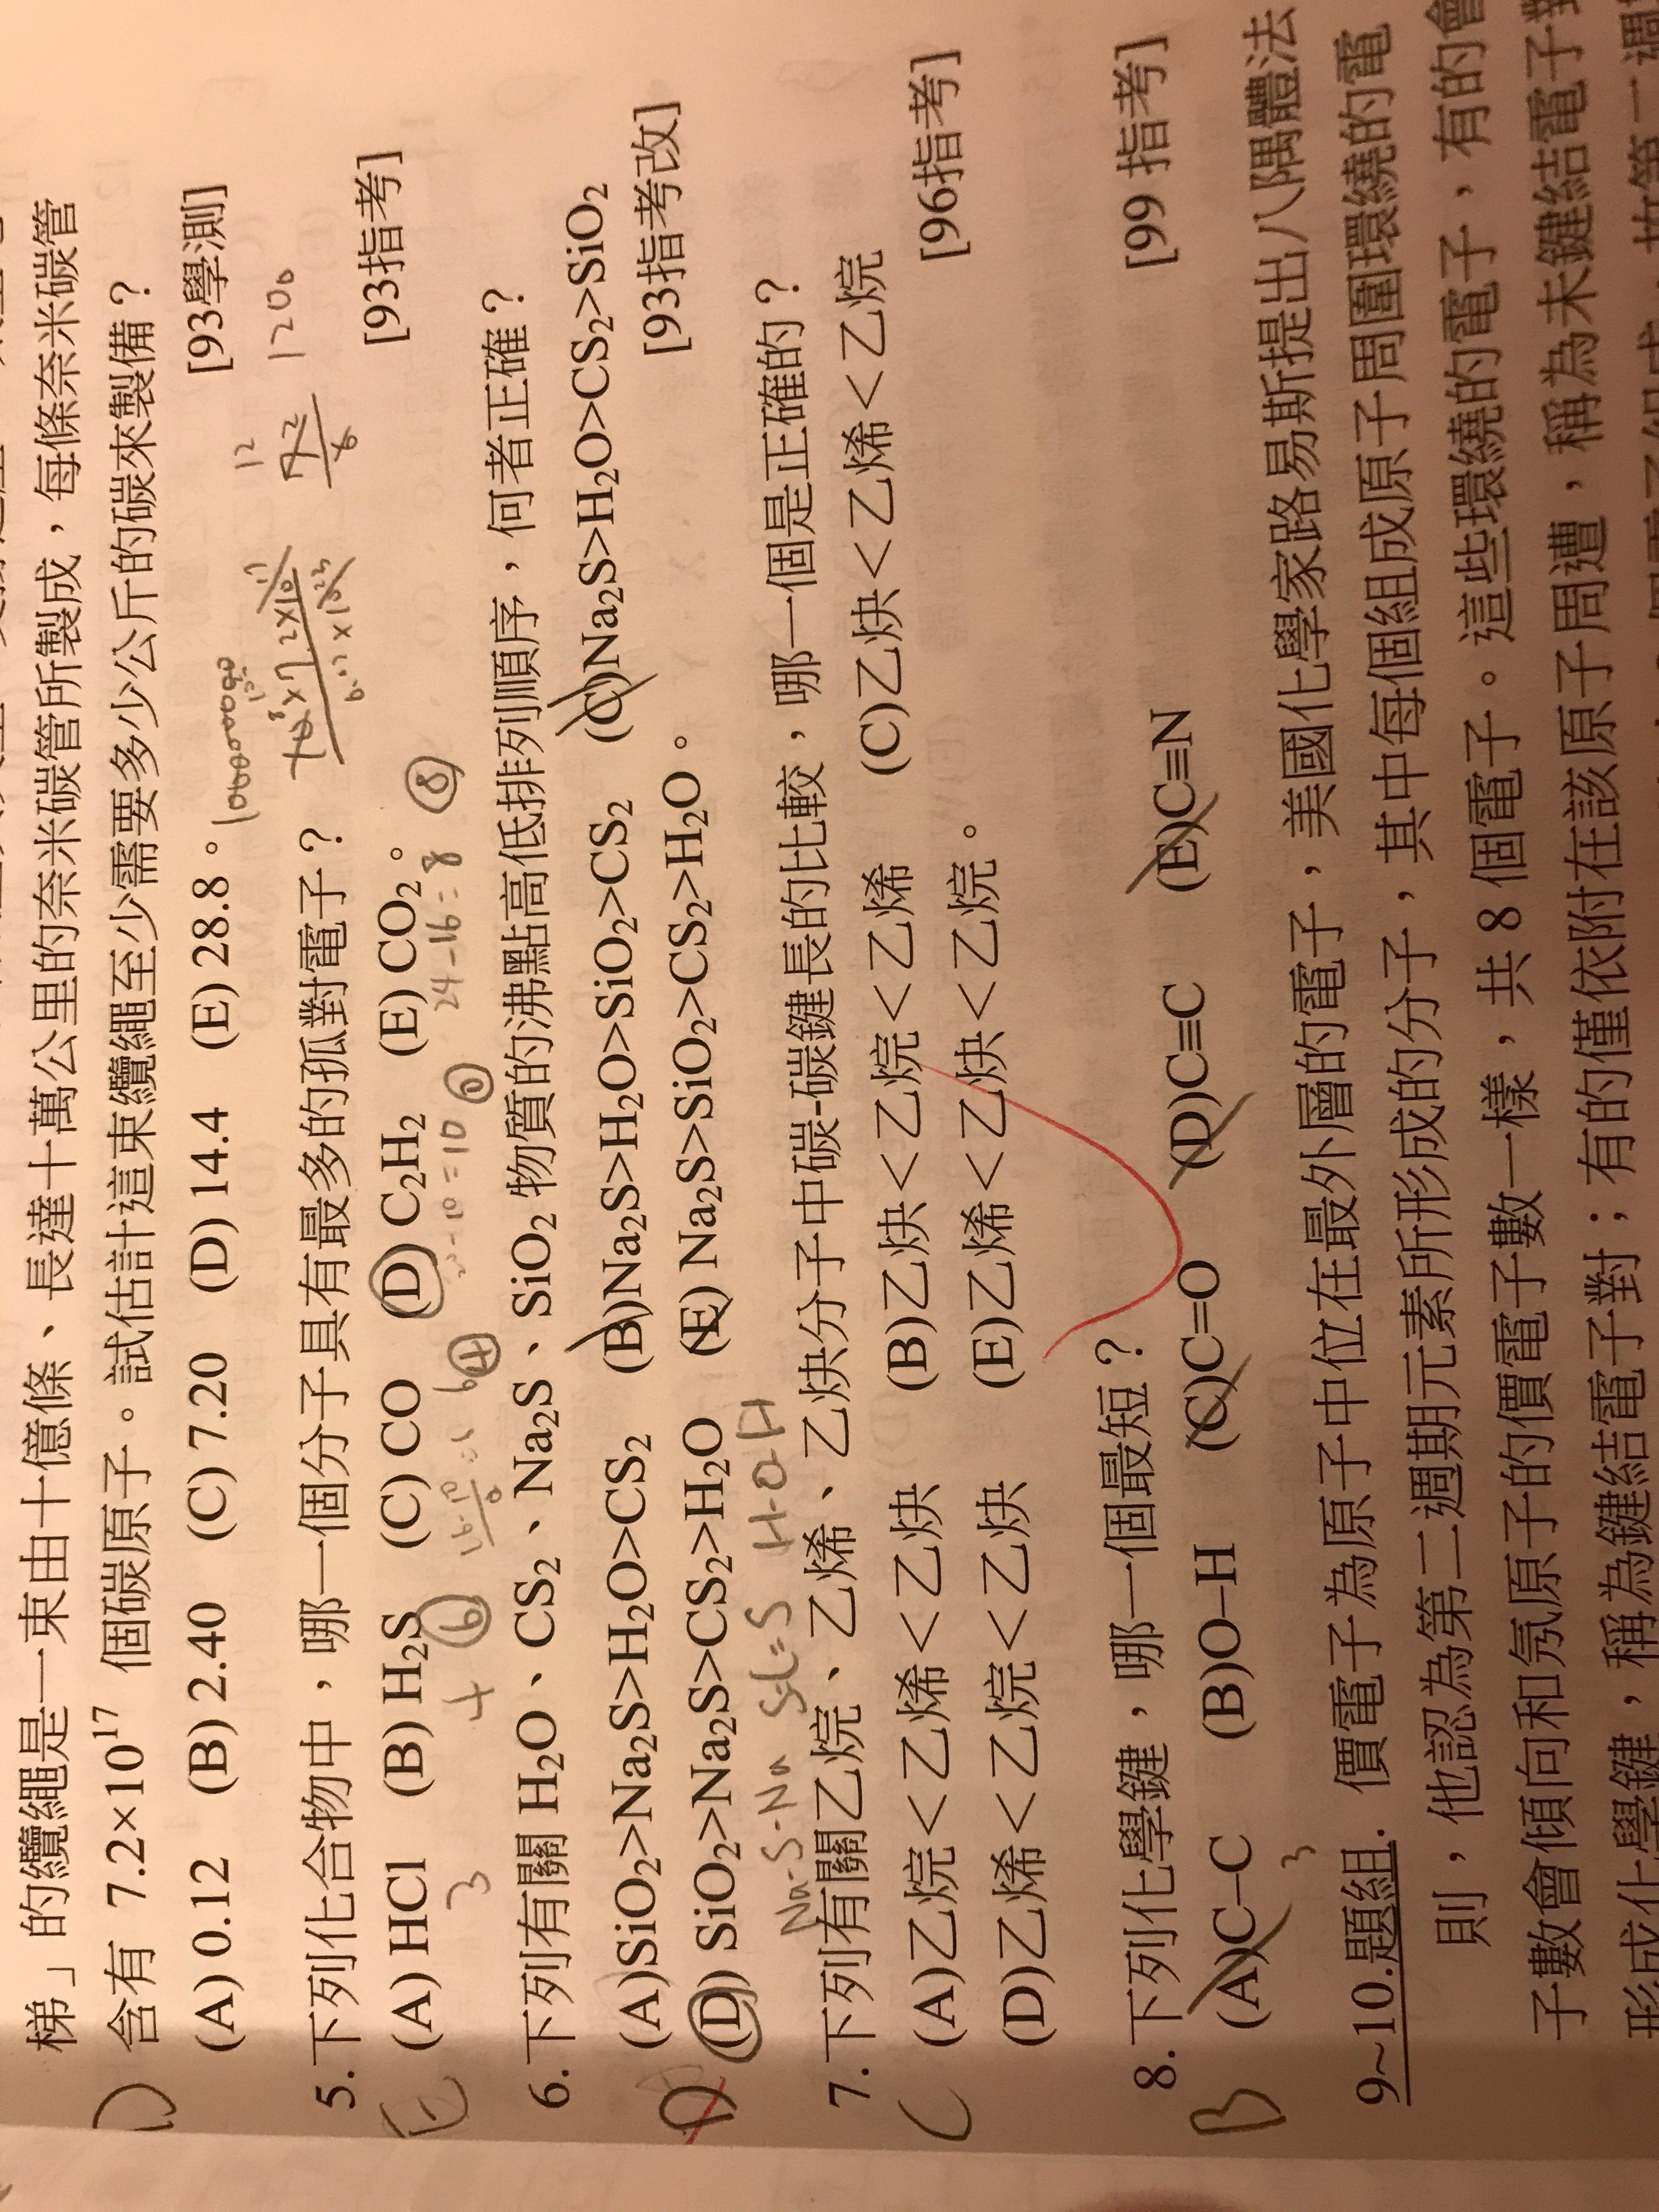 梯」的纜繩是一束由十億條、長達十萬公里的奈米碳管所製成，每條奈米碳管
含有 7.2×10¹⁷ 個碳原子。試估計這束纜繩至少需要多少公斤的碳來製備？
D
(A) 0.12 (B) 2.40 (C) 7.20 (D) 14.4 (E) 28.8。 [93學測]
5. 下列化合物中，哪一個分子具有最多的孤對電子？
E
(A) HCl (B) H₂S (C) CO (D) C₂H₂ (E) CO₂。 [93指考]
3 4 6 4 10 24-16=8 8
12
72
6
1200
6. 下列有關 H₂O、CS₂、Na₂S、SiO₂ 物質的沸點高低排列順序，何者正確？
(A)SiO₂>Na₂S>H₂O>CS₂ (B)Na₂S>H₂O>SiO₂>CS₂ (C)Na₂S>H₂O>CS₂>SiO₂
D
(D) SiO₂>Na₂S>CS₂>H₂O (E) Na₂S>SiO₂>CS₂>H₂O。 [93指考改]
Na-S-Na S=C=S H-O-H
7. 下列有關乙烷、乙烯、乙炔分子中碳-碳鍵長的比較，哪一個是正確的？
C
(A)乙烷＜乙烯＜乙炔 (B)乙炔＜乙烷＜乙烯 (C)乙炔＜乙烯＜乙烷
(D)乙烯＜乙烷＜乙炔 (E)乙烯＜乙炔＜乙烷。 [96指考]
8. 下列化學鍵，哪一個最短？
B
(A)C–C (B)O–H (C)C=O (D)C≡C (E)C≡N [99 指考]
3
9~10.題組. 價電子為原子中位在最外層的電子，美國化學家路易斯提出八隅體法
則，他認為第二週期元素所形成的分子，其中每個組成原子周圍環繞的電
子數會傾向和氖原子的價電子數一樣，共 8 個電子。這些環繞的電子，有的會
形成化學鍵，稱為鍵結電子對；有的僅依附在該原子周遭，稱為未鍵結電子對